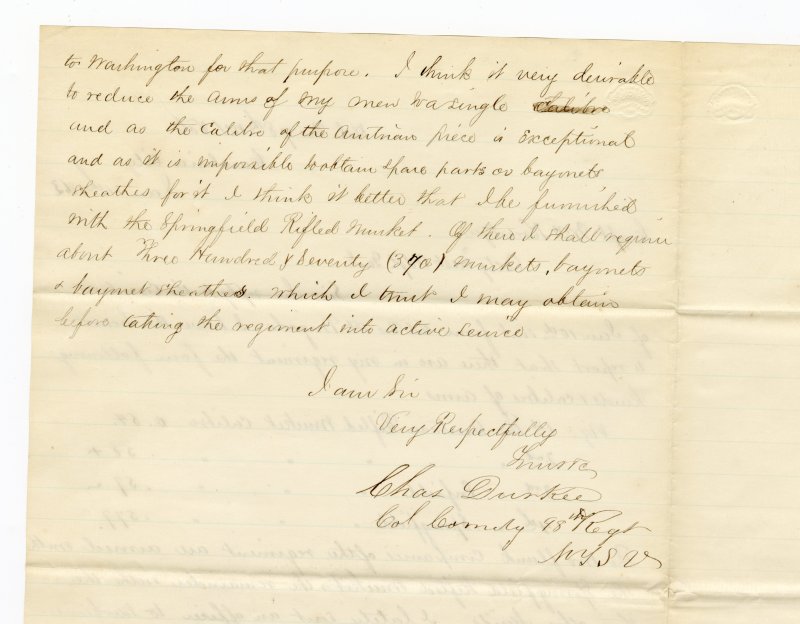 to Washington for that purpose. I think it very desirable
to reduce the arms of my men to a single Calibre
and as the Calibre of the Austrian piece is Exceptional
and as it is impossible to obtain spare parts or bayonets
sheathes for it I think it better that I be furnished
with the Springfield Rifled Musket. Of these I shall require
about Three Hundred & Seventy (370) muskets, bayonets
& bayonet sheathes. which I trust I may obtain
before taking the regiment into active service
I am Sir
Very Respectfully
Chas Durkee
Col Comdg 98th Regt
NYSV